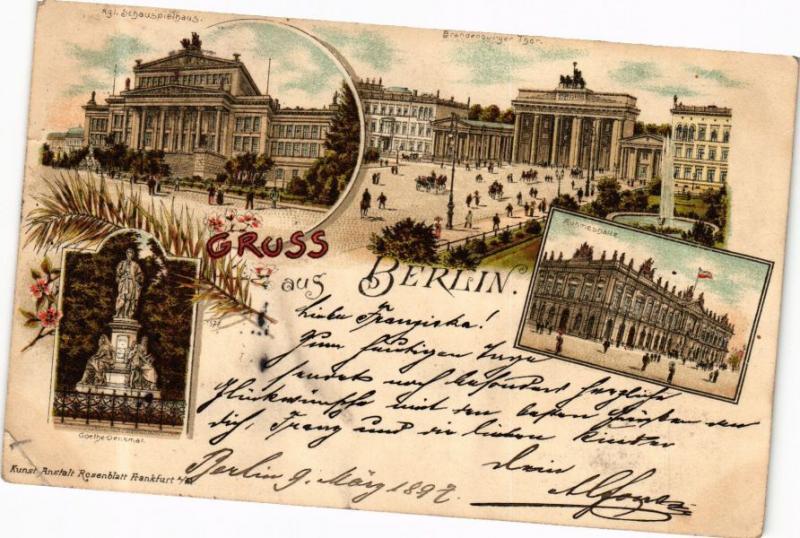 Kgl. Schauspielhaus.
Brandenburger Thor.
Ruhmeshalle
GRUSS
aus BERLIN.
Liebe Franziska!
Zum heutigen Tage
sendet noch besonders herzliche
Glückwünsche mit den besten Grüßen an
dich, Franz und die lieben Kinder
Dein
Alfons
Goethe-Denkmal.
Kunst Anstalt Rosenblatt Frankfurt a/M
Berlin 9. März 1897.